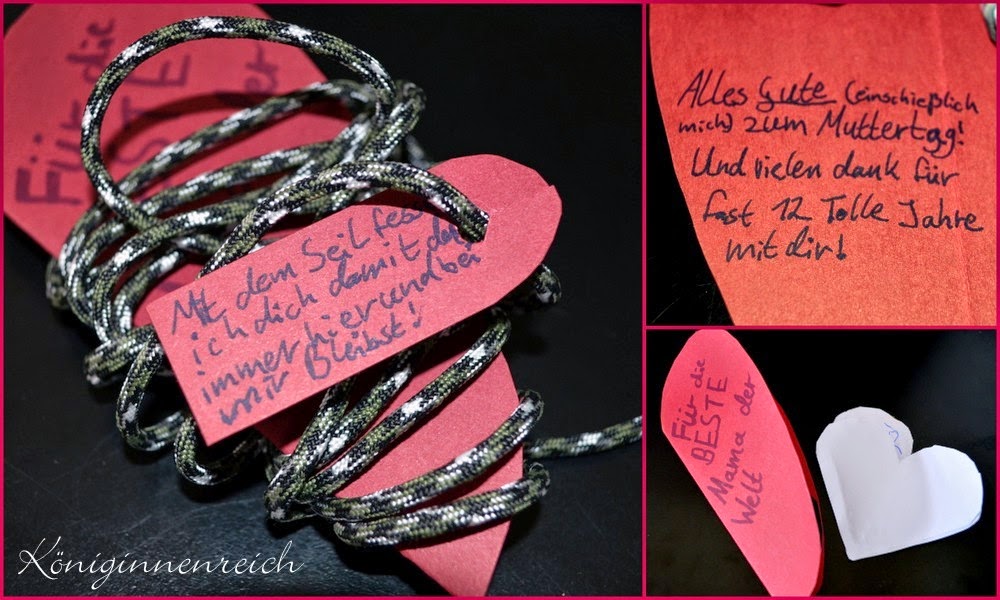 Für die
BESTE
er
Mit dem Seil fes
ich dich damit du
immer hier und bei
mir Bleibst!
Königinnenreich
Alles Gute (einschießlich
mich) zum Muttertag!
Und vielen dank für
fast 12 Tolle Jahre
mit dir!
Für die
BESTE
Mama der
Welt